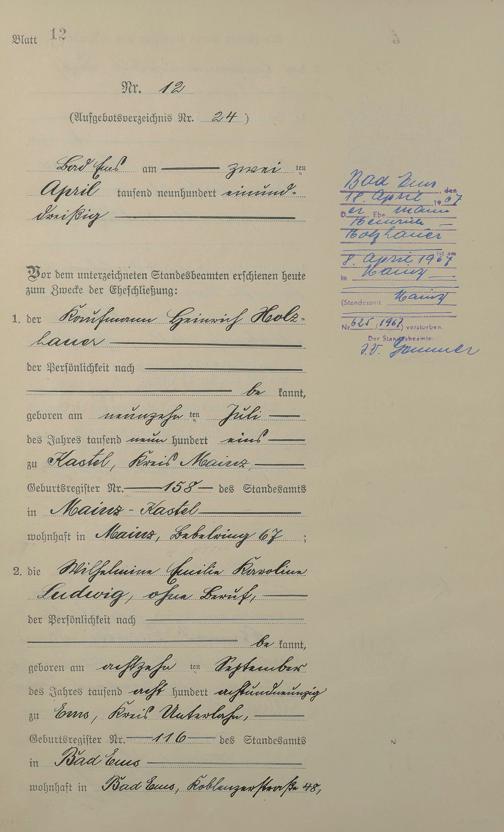 Blatt 12
Nr. 12
(Aufgebotsverzeichnis Nr. 24)
Bad Ems am zwei ten
April tausend neunhundert einund-
dreißig
Vor dem unterzeichneten Standesbeamten erschienen heute
zum Zwecke der Eheschließung:
1. der Kaufmann Heinrich Holz-
hauer
der Persönlichkeit nach
be kannt,
geboren am neunzehn ten Juli
des Jahres tausend neun hundert eins
zu Kastel, Kreis Mainz,
Geburtsregister Nr. 158 des Standesamts
in Mainz-Kastel
wohnhaft in Mainz, Bebelring 67;
2. die Wilhelmine Emilie Karoline
Ludwig, ohne Beruf,
der Persönlichkeit nach
be kannt,
geboren am achtzehn ten September
des Jahres tausend acht hundert achtundneunzig
zu Ems, Kreis Unterlahn,
Geburtsregister Nr. 116 des Standesamts
in Bad Ems
wohnhaft in Bad Ems, Koblenzerstraße 48,
Bad Ems, den
18. April 1967
Der Ehemann
Heinrich
Holzhauer
ist am
8. April 1967
in Mainz
(Standesamt Mainz
Nr. 625/1967) verstorben.
Der Standesbeamte:
I.V.